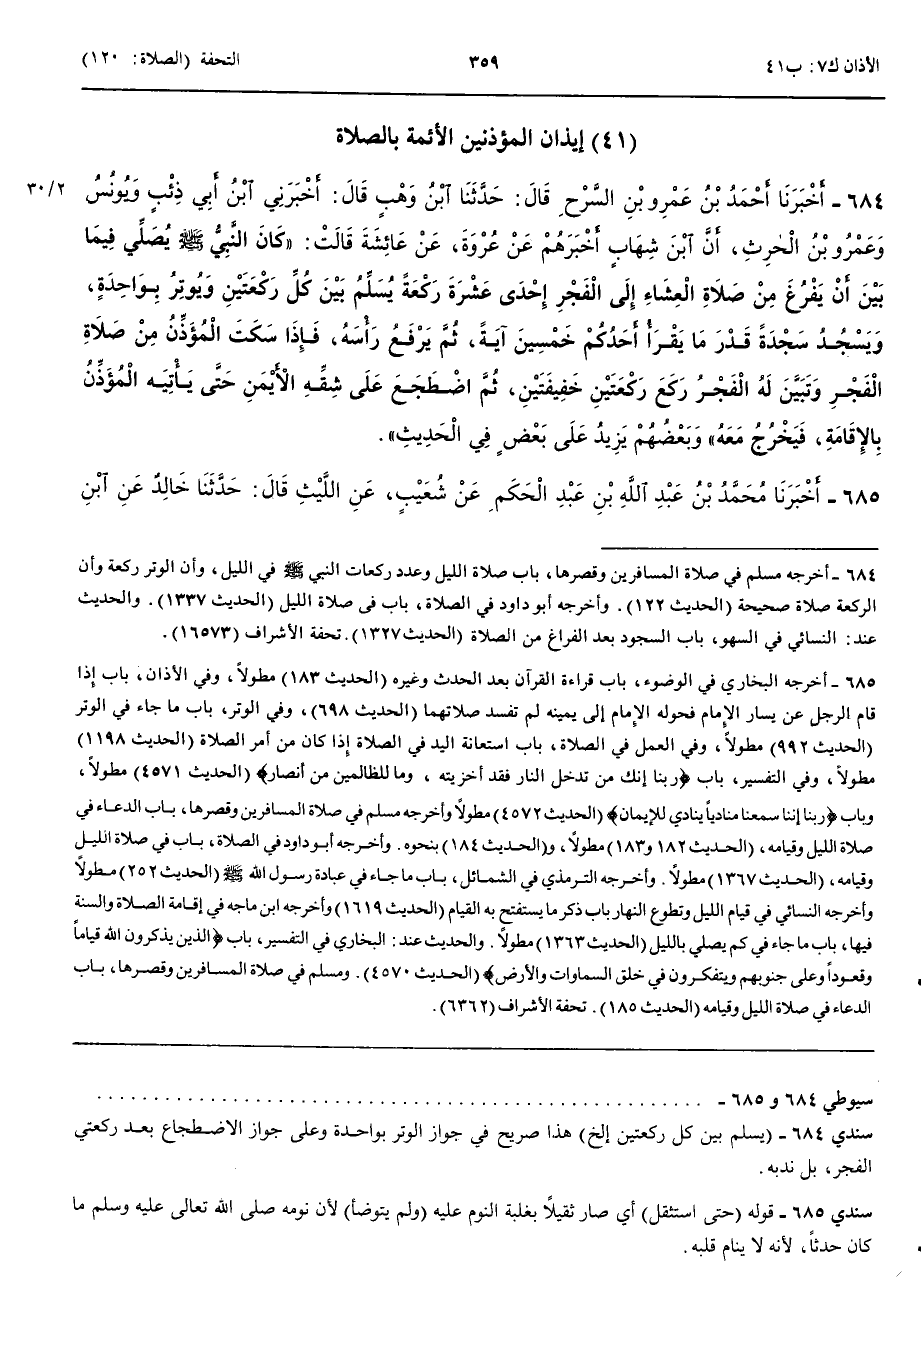 الأذان ك٧: ب٤١ ٣٥٩ التحفة (الصلاة: ١٢٠)
(٤١) إيذان المؤذنين الأئمة بالصلاة
٦٨٤ - أَخْبَرَنَا أَحْمَدُ بْنُ عَمْرِو بْنِ السَّرْحِ قَالَ: حَدَّثَنَا ابْنُ وَهْبٍ قَالَ: أَخْبَرَنِي ابْنُ أَبِي ذِئْبٍ وَيُونُسُ ٣٠/٢
وَعَمْرُو بْنُ الْحٰرِثِ، أَنَّ ابْنَ شِهَابٍ أَخْبَرَهُمْ عَنْ عُرْوَةَ، عَنْ عَائِشَةَ قَالَتْ: «كَانَ النَّبِيُّ ﷺ يُصَلِّي فِيمَا
بَيْنَ أَنْ يَفْرُغَ مِنْ صَلَاةِ الْعِشَاءِ إِلَى الْفَجْرِ إِحْدَى عَشْرَةَ رَكْعَةً يُسَلِّمُ بَيْنَ كُلِّ رَكْعَتَيْنِ وَيُوتِرُ بِوَاحِدَةٍ،
وَيَسْجُدُ سَجْدَةً قَدْرَ مَا يَقْرَأُ أَحَدُكُمْ خَمْسِينَ آيَةً، ثُمَّ يَرْفَعُ رَأْسَهُ، فَإِذَا سَكَتَ الْمُؤَذِّنُ مِنْ صَلَاةِ
الْفَجْرِ وَتَبَيَّنَ لَهُ الْفَجْرُ رَكَعَ رَكْعَتَيْنِ خَفِيفَتَيْنِ، ثُمَّ اضْطَجَعَ عَلَى شِقِّهِ الْأَيْمَنِ حَتَّى يَأْتِيَه الْمُؤَذِّنُ
بِالإِقَامَةِ، فَيَخْرُجُ مَعَهُ» وَبَعْضُهُمْ يَزِيدُ عَلَى بَعْضٍ فِي الْحَدِيثِ».
٦٨٥ - أَخْبَرَنَا مُحَمَّدُ بْنُ عَبْدِ اللَّهِ بْنِ عَبْدِ الْحَكَمِ عَنْ شُعَيْبٍ، عَنِ اللَّيْثِ قَالَ: حَدَّثَنَا خَالِدٌ عَنِ ابْنِ
٦٨٤ - أخرجه مسلم في صلاة المسافرين وقصرها، باب صلاة الليل وعدد ركعات النبي ﷺ في الليل، وأن الوتر ركعة وأن
الركعة صلاة صحيحة (الحديث ١٢٢). وأخرجه أبو داود في الصلاة، باب فى صلاة الليل (الحديث ١٣٣٧). والحديث
عند: النسائي في السهو، باب السجود بعد الفراغ من الصلاة (الحديث١٣٢٧).تحفة الأشراف (١٦٥٧٣).
٦٨٥ - أخرجه البخاري في الوضوء، باب قراءة القرآن بعد الحدث وغيره (الحديث ١٨٣) مطولاً، وفي الأذان، باب إذا
قام الرجل عن يسار الإمام فحوله الإمام إلى يمينه لم تفسد صلاتهما (الحديث ٦٩٨)، وفي الوتر، باب ما جاء في الوتر
(الحديث ٩٩٢) مطولاً، وفي العمل في الصلاة، باب استعانة اليد في الصلاة إذا كان من أمر الصلاة (الحديث ١١٩٨)
مطولاً، وفي التفسير، باب ﴿ربنا إنك من تدخل النار فقد أخزيته ، وما للظالمين من أنصار﴾ (الحديث ٤٥٧١) مطولاً،
وباب ﴿ربنا إننا سمعنا منادياً ينادي للإيمان﴾ (الحديث ٤٥٧٢) مطولاً وأخرجه مسلم في صلاة المسافرين وقصرها، باب الدعاء في
صلاة الليل وقيامه، (الحديث ١٨٢ و١٨٣) مطولاً، و(الحديث ١٨٤) بنحوه. وأخرجه أبو داود في الصلاة، باب في صلاة الليل
وقيامه، (الحديث ١٣٦٧) مطولاً. وأخرجه الترمذي في الشمائل، باب ما جاء في عبادة رسول الله ﷺ (الحديث ٢٥٢) مطولاً
وأخرجه النسائي في قيام الليل وتطوع النهار باب ذكر ما يستفتح به القيام (الحديث ١٦١٩) وأخرجه ابن ماجه في إقامة الصلاة والسنة
فيها، باب ما جاء في كم يصلي بالليل (الحديث ١٣٦٣) مطولاً. والحديث عند: البخاري في التفسير، باب ﴿الذين يذكرون الله قياماً
وقعوداً وعلى جنوبهم ويتفكرون في خلق السماوات والأرض﴾ (الحديث ٤٥٧٠). ومسلم في صلاة المسافرين وقصرها، باب
الدعاء في صلاة الليل وقيامه (الحديث ١٨٥). تحفة الأشراف (٦٣٦٢).
سيوطي ٦٨٤ و ٦٨٥ - . . . . . . . . . . . . . . . . . . . . . . . . . . . . . . . . . . . . . . . .
سندي ٦٨٤ - (يسلم بين كل ركعتين إلخ) هذا صريح في جواز الوتر بواحدة وعلى جواز الاضطجاع بعد ركعتي
الفجر، بل ندبه.
سندي ٦٨٥ - قوله (حتى استثقل) أي صار ثقيلاً بغلبة النوم عليه (ولم يتوضأ) لأن نومه صلى الله تعالى عليه وسلم ما
كان حدثاً، لأنه لا ينام قلبه.